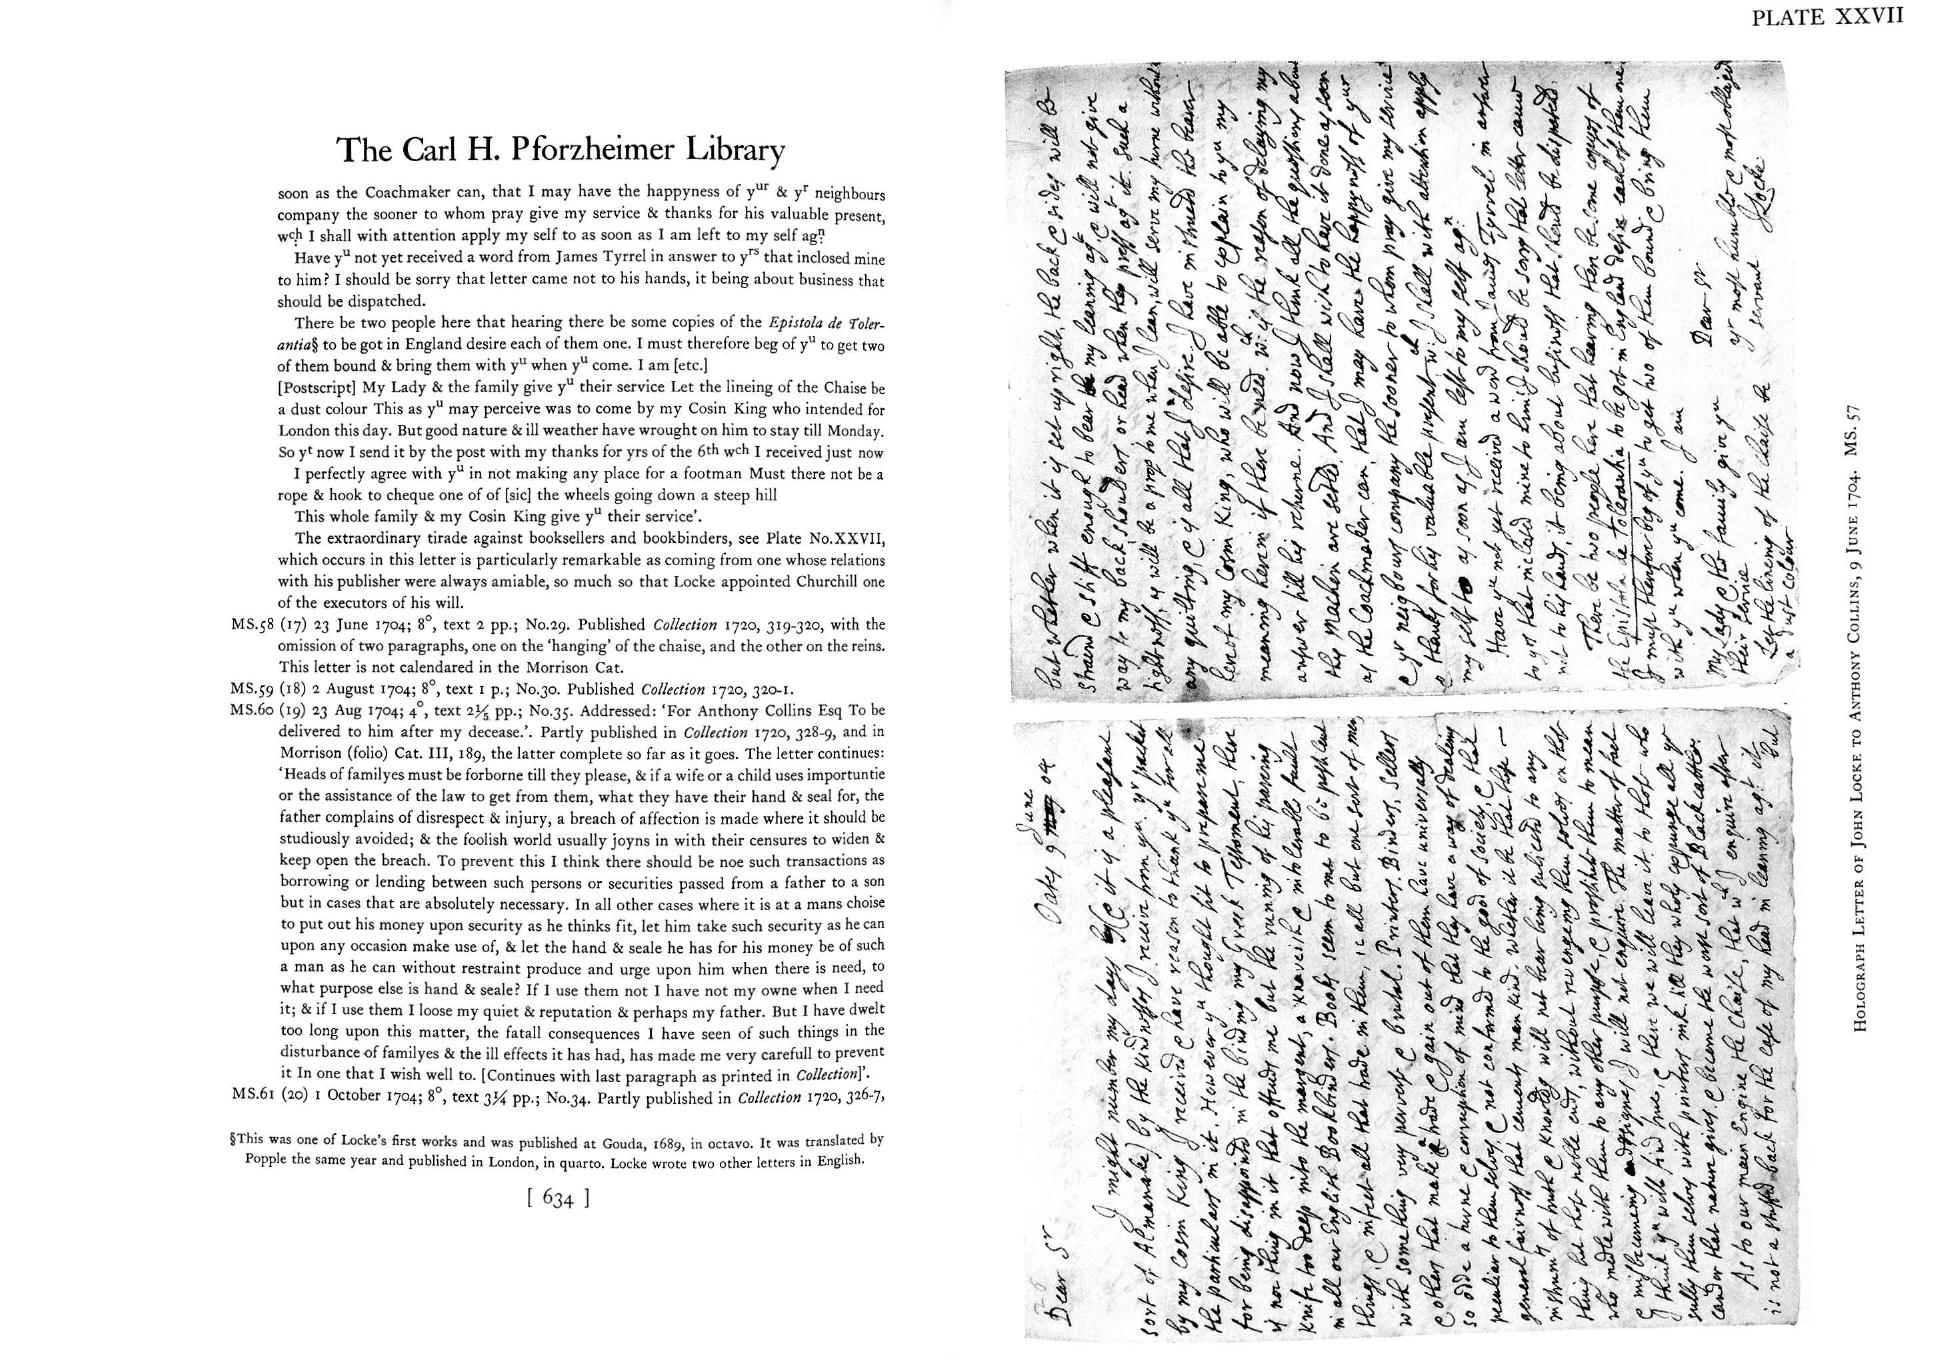 The Carl H. Pforzheimer Library
soon as the Coachmaker can, that I may have the happyness of yᵘʳ & yʳ neighbours
company the sooner to whom pray give my service & thanks for his valuable present,
wᶜʰ I shall with attention apply my self to as soon as I am left to my self agⁿ.
Have yᵘ not yet received a word from James Tyrrel in answer to yʳˢ that inclosed mine
to him? I should be sorry that letter came not to his hands, it being about business that
should be dispatched.
There be two people here that hearing there be some copies of the Epistola de Toler-
antia§ to be got in England desire each of them one. I must therefore beg of yᵘ to get two
of them bound & bring them with yᵘ when yᵘ come. I am [etc.]
[Postscript] My Lady & the family give yᵘ their service Let the lineing of the Chaise be
a dust colour This as yᵘ may perceive was to come by my Cosin King who intended for
London this day. But good nature & ill weather have wrought on him to stay till Monday.
So yᵗ now I send it by the post with my thanks for yrs of the 6th wch I received just now
I perfectly agree with yᵘ in not making any place for a footman Must there not be a
rope & hook to cheque one of of [sic] the wheels going down a steep hill
This whole family & my Cosin King give yᵘ their service’.
The extraordinary tirade against booksellers and bookbinders, see Plate No.XXVII,
which occurs in this letter is particularly remarkable as coming from one whose relations
with his publisher were always amiable, so much so that Locke appointed Churchill one
of the executors of his will.
MS.58 (17) 23 June 1704; 8°, text 2 pp.; No.29. Published Collection 1720, 319-320, with the
omission of two paragraphs, one on the ‘hanging’ of the chaise, and the other on the reins.
This letter is not calendared in the Morrison Cat.
MS.59 (18) 2 August 1704; 8°, text 1 p.; No.30. Published Collection 1720, 320-1.
MS.60 (19) 23 Aug 1704; 4°, text 2⅕ pp.; No.35. Addressed: ‘For Anthony Collins Esq To be
delivered to him after my decease.’. Partly published in Collection 1720, 328-9, and in
Morrison (folio) Cat. III, 189, the latter complete so far as it goes. The letter continues:
‘Heads of familyes must be forborne till they please, & if a wife or a child uses importuntie
or the assistance of the law to get from them, what they have their hand & seal for, the
father complains of disrespect & injury, a breach of affection is made where it should be
studiously avoided; & the foolish world usually joyns in with their censures to widen &
keep open the breach. To prevent this I think there should be noe such transactions as
borrowing or lending between such persons or securities passed from a father to a son
but in cases that are absolutely necessary. In all other cases where it is at a mans choise
to put out his money upon security as he thinks fit, let him take such security as he can
upon any occasion make use of, & let the hand & seale he has for his money be of such
a man as he can without restraint produce and urge upon him when there is need, to
what purpose else is hand & seale? If I use them not I have not my owne when I need
it; & if I use them I loose my quiet & reputation & perhaps my father. But I have dwelt
too long upon this matter, the fatall consequences I have seen of such things in the
disturbance of familyes & the ill effects it has had, has made me very carefull to prevent
it In one that I wish well to. [Continues with last paragraph as printed in Collection]’.
MS.61 (20) 1 October 1704; 8°, text 3¼ pp.; No.34. Partly published in Collection 1720, 326-7,
§This was one of Locke’s first works and was published at Gouda, 1689, in octavo. It was translated by
Popple the same year and published in London, in quarto. Locke wrote two other letters in English.
[ 634 ]
PLATE XXVII
Oates 9 June 04
Dear Sʳ
I might number my days (& it is a pleasant
sort of Almanake) by the kindnesses I receive from yᵘ. yʳ packet
by my Cosin King I received & have reason to thank yᵘ for all
the particulars in it. However yᵘ thought fit to prepare me
for being disappointed in the binding my Greek Testament, there
is nothing in it that offends me but the running of his paring
knife too deep into the margent, a knavish & intolerable fault
in all our English Bookbinders. Books seem to me to be pestilent
things, & infect all that trade in them, i e all but one sort of men,
with something very perverse & brutal. Printers. Binders. Sellers
& others that make a trade & gain out of them have universally
so odde a turne & corruption of mind that they have a way of dealing
peculiar to themselves, & not conformed to the good of society, & that
general fairness that cements mankind. Whether it be that these —
instrumᵗˢ of truth & knowledg will not bear being subjected to any
thing but those noble ends, without revengeing them selves on those
who medle with them to any other purpose, & prostitute them to mean
& misbecomeing designes I will not enquire. The matter of fact
I think yᵘ will find true, & there we will leave it to those who
sully them selves with printers ink till they wholy expunge all yᵉ
candor that nature gives, & become the worst sort of Black cattle.
As to our main Engine the Chaise, that wᶜʰ I enquire after
is not a stuffed back for the ease of my head in leaning agᵗ it
but
but whether when it is set up right, the back & sides will be
straind & stiff enough to bear my leaning agᵗ, & will not give
way to my back, shoulders or head when they press agᵗ it. Such a
tightness, as will be a prop to me when I lean, will serve my turne without
any quilting, & is all that I desire. I have instructed the bearer
hereof my Cosin King, who will be able to explain to yᵘ my
meaning herein if there be need. wᶜʰ is the reason of delaying my
answer till his returne. And now I think all the questions about
this Machin are setled And I shall wish to have it done as soon
as the Coachmaker can, that I may have the happyness of yᵘʳ
& yʳ neigbours company the sooner to whom pray give my service
& thanks for his valuable present wᶜʰ I shall with attention apply
my self to as soon as I am left to my self agⁿ.
Have yᵘ not yet received a word from James Tyrrel in answer
to yʳˢ that incloced mine to him? I should be sorry that letter came
not to his hands, it being about business that should be dispatched.
There be two people here that hearing there be some copies of
the Epistola de Tolerantia to be got in England desire each of them one
I must therefore beg of yᵘ to get two of them bound & bring them
with yᵘ when yᵘ come. I am
Dear Sʳ
yʳ most humble & most obliged
servant J Locke.
My Lady & the family give you
their service
Let the lineing of the Chaise be
a dust colour
HOLOGRAPH LETTER OF JOHN LOCKE TO ANTHONY COLLINS, 9 JUNE 1704. MS. 57